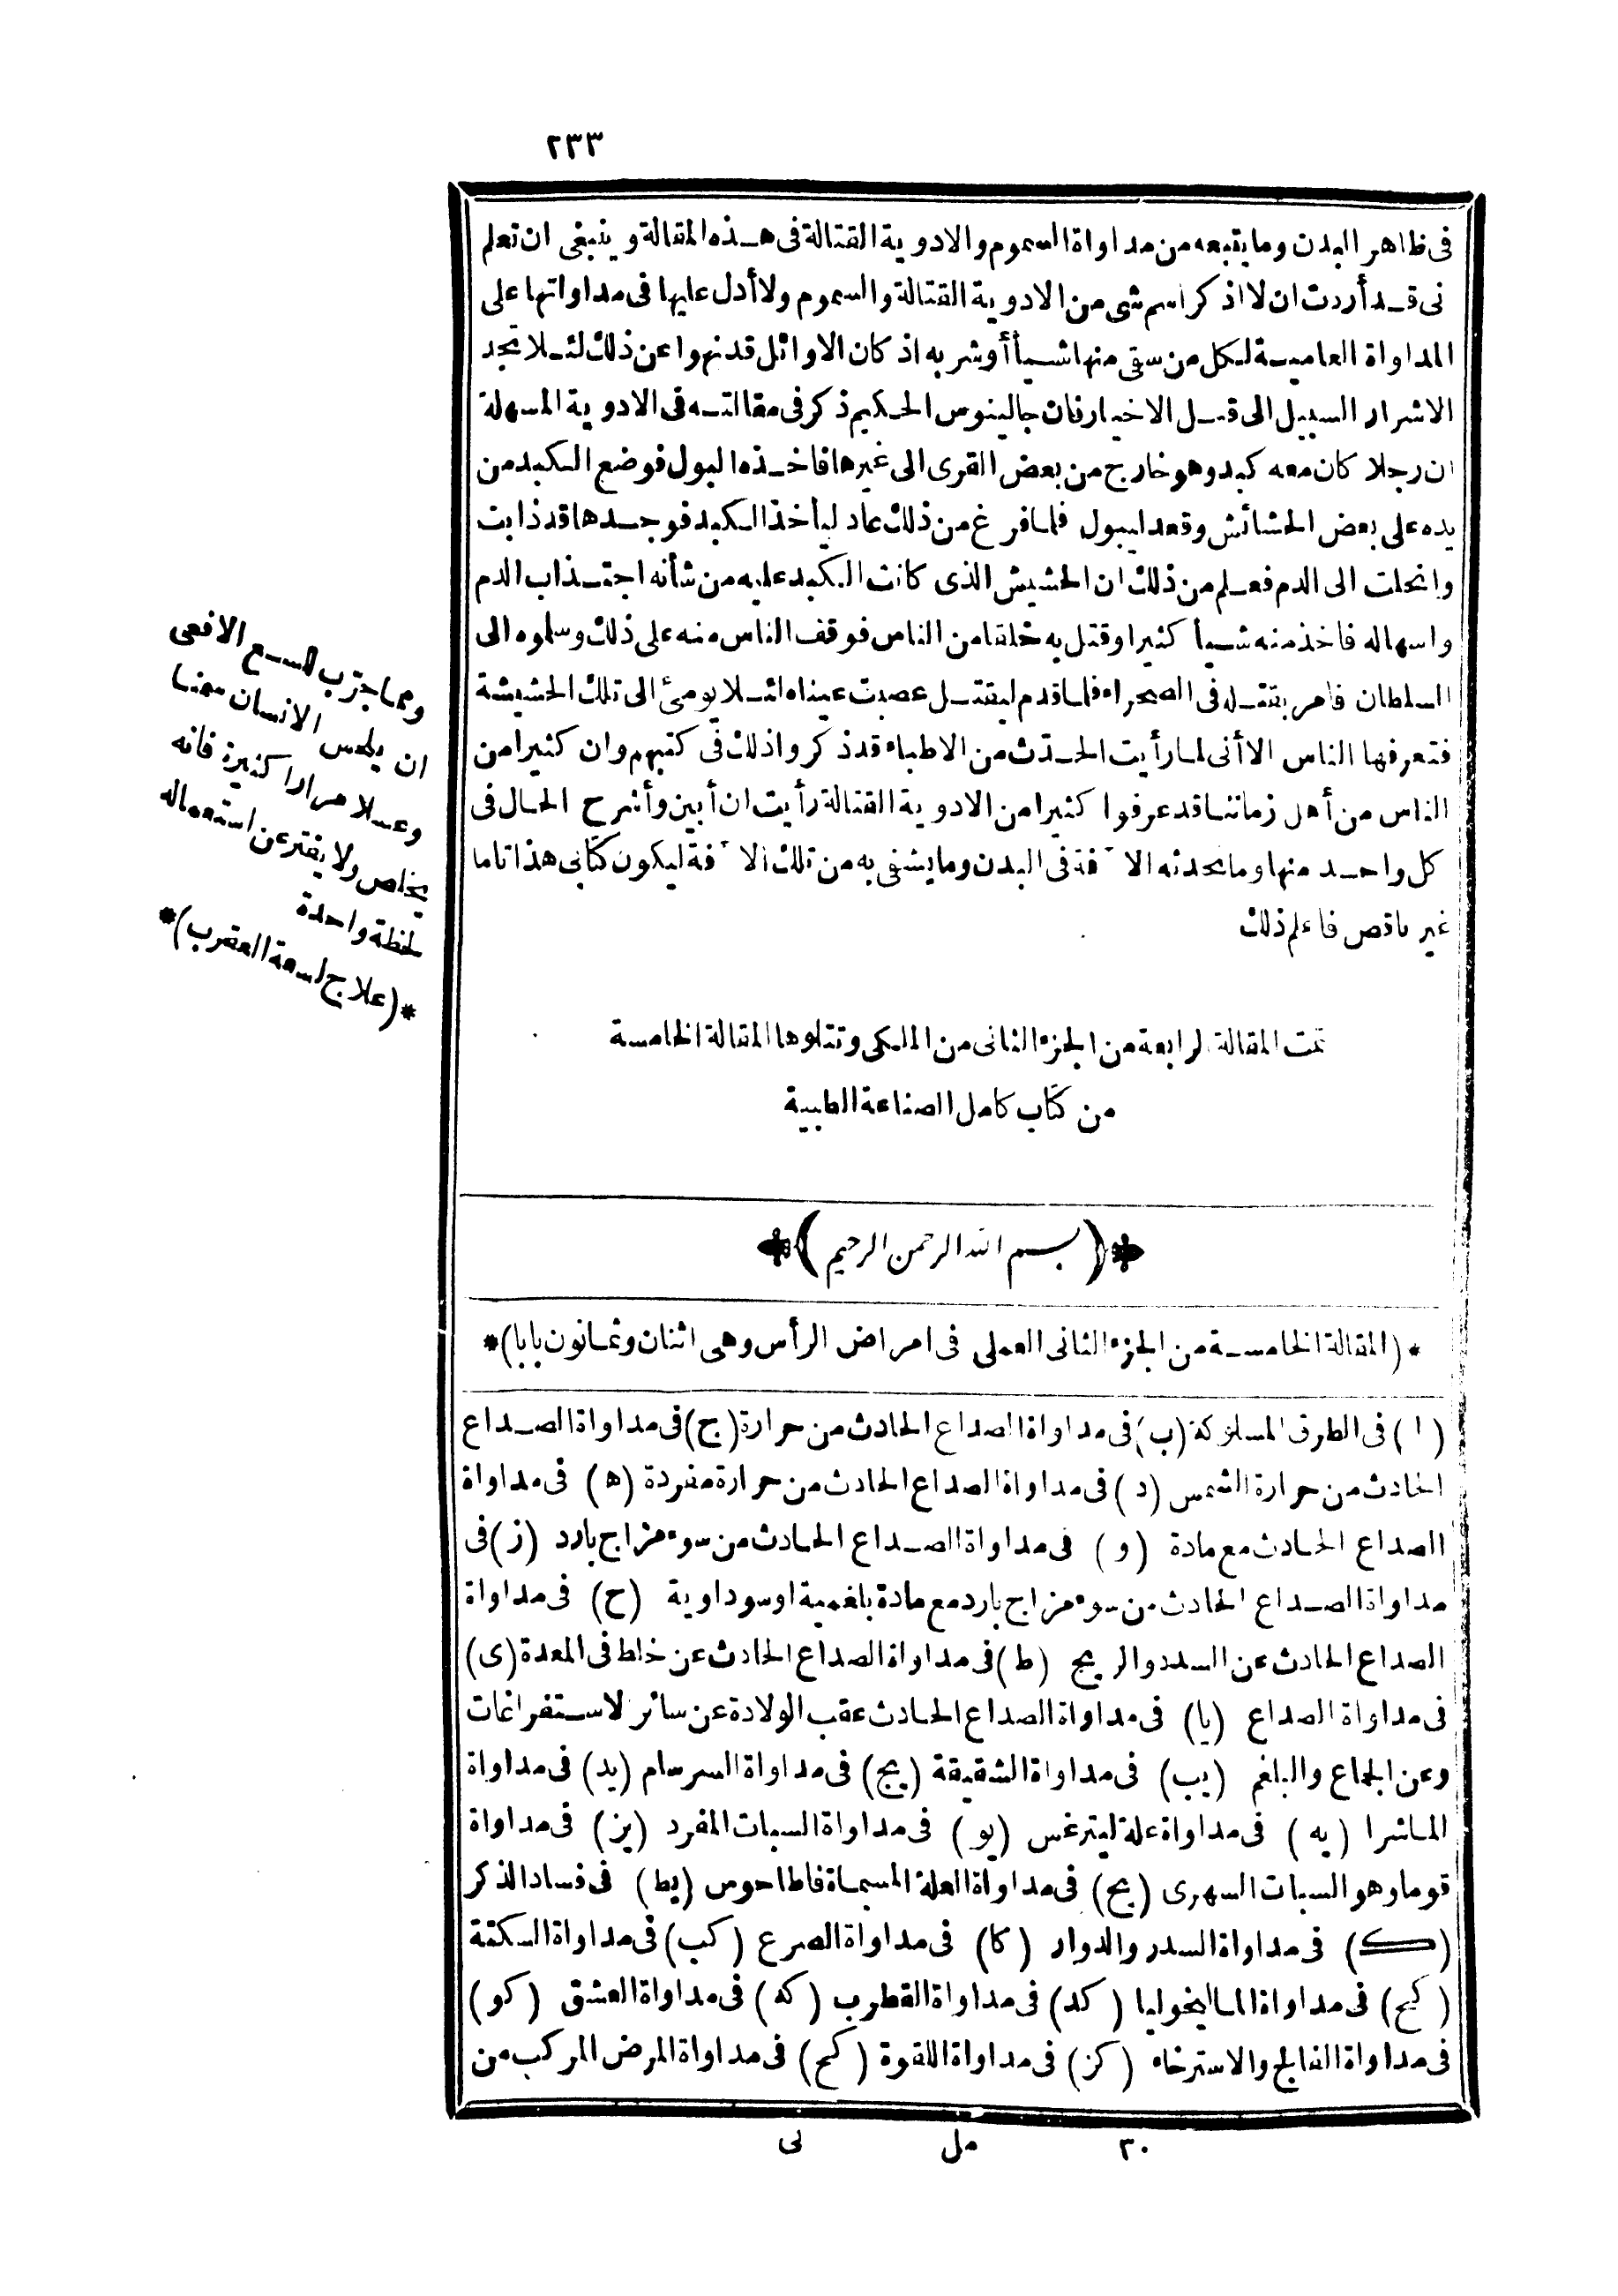 ٢٣٣
فى ظاهر البدن وما يتبعه من مداواة السموم والادوية القتالة فى هذه المقالة وينبغى ان تعلم
نى قد أردت ان لا اذكر اسم شى من الادوية القتالة والسموم ولا أدل عليها فى مداواتها على
المداواة العامية لكل من سقى منها شيأ أو شربه اذ كان الاوائل قد نهوا عن ذلك لئلا تجد
الاشرار السبيل الى قتل الاخيار فان جالينوس الحكيم ذكر فى مقالته فى الادوية المسهلة
ان رجلا كان معه كبد وهو خارج من بعض القرى الى غيرها فاخذه البول فوضع الكبد من
يده على بعض الحشائش وقعد ليبول فلما فرغ من ذلك عاد ليأخذ الكبد فوجدها قد ذابت
وانحلت الى الدم فعلم من ذلك ان الحشيش الذى كانت الكبد عليه من شأنه اجتذاب الدم
واسهاله فاخذ منه شيأ كثيرا وقتل به خلقا من الناس فوقف الناس منه على ذلك وسلموه الى
السلطان فامر بقتله فى الصحراء فلما قدم ليقتل عصبت عيناه لئلا يومئ الى تلك الحشيشة
فتعرفها الناس الا أنى لما رأيت الحدث من الاطباء قد ذكروا ذلك فى كتبهم وان كثيرا من
الناس من أهل زماننا قد عرفوا كثيرا من الادوية القتالة رأيت ان أبين وأشرح الحال فى
كل واحد منها وما تحدثه الآفة فى البدن وما يشفى به من تلك الآفة ليكون كتابى هذا تاما
غير ناقص فاعلم ذلك
ومما جرب للسع الافعى
ان يلحس الانسان سمنا
وعسلا مرارا كثيرة فانه
يخلص ولا يفتر عن استعماله
لحظة واحدة
*(علاج لسعة العقرب)*
تمت المقالة الرابعة من الجزء الثانى من الملكى وتتلوها المقالة الخامسة
من كتاب كامل الصناعة الطبية
(بسم الله الرحمن الرحيم)
*(المقالة الخامسة من الجزء الثانى العملى فى امراض الرأس وهى اثنان وثمانون بابا)*
(ا) فى الطرق المسلوكة (ب) فى مداواة الصداع الحادث من حرارة (ج) فى مداواة الصداع
الحادث من حرارة الشمس (د) فى مداواة الصداع الحادث من حرارة مفردة (ه) فى مداواة
الصداع الحادث مع مادة (و) فى مداواة الصداع الحادث من سوء مزاج بارد (ز) فى
مداواة الصداع الحادث من سوء مزاج بارد مع مادة بلغمية او سوداوية (ح) فى مداواة
الصداع الحادث عن السدد والريح (ط) فى مداواة الصداع الحادث عن خلط فى المعدة (ى)
فى مداواة الصداع (يا) فى مداواة الصداع الحادث عقب الولادة عن سائر لاستفراغات
وعن الجماع والبلغم (يب) فى مداواة الشقيقة (يج) فى مداواة السرسام (يد) فى مداواة
الماشرا (يه) فى مداواة علة ليترغس (يو) فى مداواة السبات المفرد (يز) فى مداواة
قوما وهو السبات السهرى (يح) فى مداواة العلة المسماة فاطاحوس (يط) فى فساد الذكر
(ك) فى مداواة السدر والدوار (كا) فى مداواة الصرع (كب) فى مداواة السكتة
(كج) فى مداواة الماليخوليا (كد) فى مداواة القطرب (كه) فى مداواة العشق (كو)
فى مداواة الفالج والاسترخاء (كز) فى مداواة اللقوة (كح) فى مداواة المرض المركب من
٣٠ مل لى